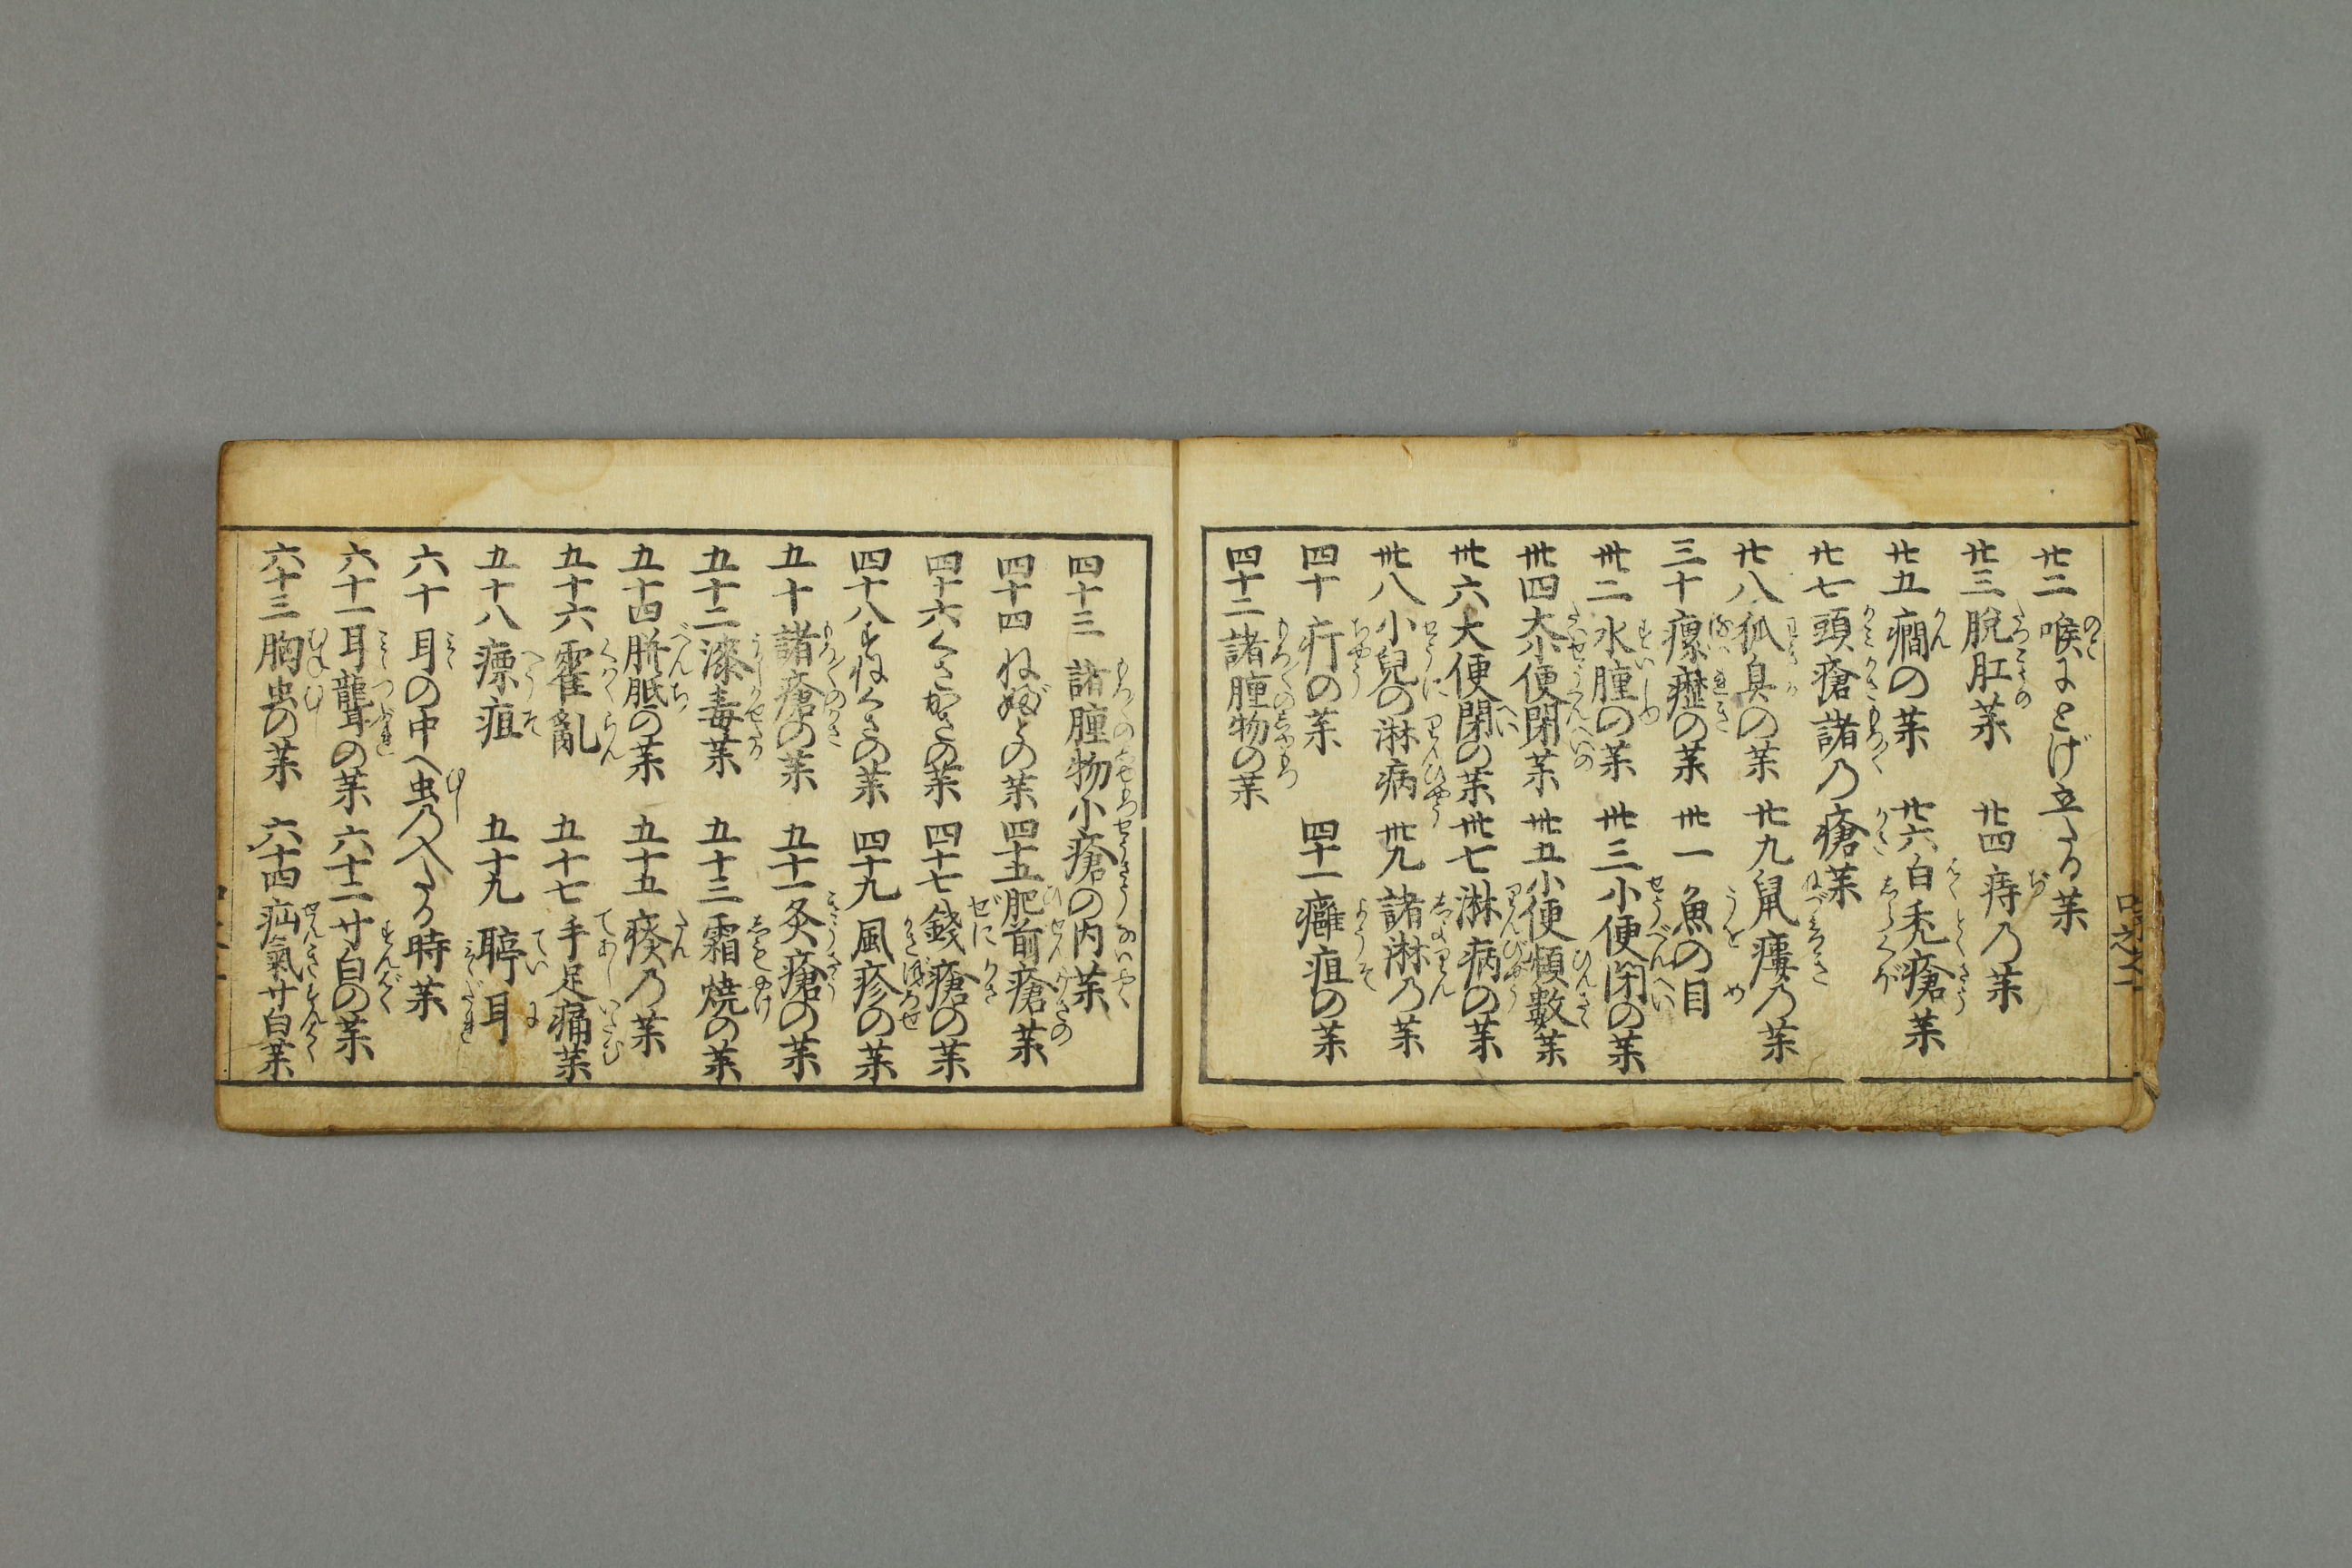 廿二 喉にとげ立たる薬
廿三 脱肛薬 廿四 痔乃薬
廿五 癇の薬 廿六 白禿瘡薬
廿七 頭瘡諸乃瘡薬
廿八 狐臭の薬 廿九 鼠瘻乃薬
三十 瘰癧の薬 卅一 魚の目
卅二 水腫の薬 卅三 小便閉の薬
卅四 大小便閉薬 卅五 小便頻數薬
卅六 大便閉の薬 卅七 淋病の薬
卅八 小兒の淋病 卅九 諸淋乃薬
四十 疔の薬 四十一 癰疽の薬
四十二 諸腫物の薬
四十三 諸腫物小瘡の内薬
四十四 ねぶとの薬 四十五 肥前瘡薬
四十六 くさがさの薬 四十七 錢瘡の薬
四十八 すねくさの薬 四十九 風疹の薬
五十 諸瘡の薬 五十一 灸瘡の薬
五十二 漆毒薬 五十三 霜焼の薬
五十四 胼胝の薬 五十五 痰乃薬
五十六 霍亂 五十七 手足痛薬
五十八 瘭疽 五十九 聤耳
六十 耳の中へ虫乃入たる時薬
六十一 耳聾の薬 六十二 寸白の薬
六十三 胸虫の薬 六十四 疝氣寸白薬